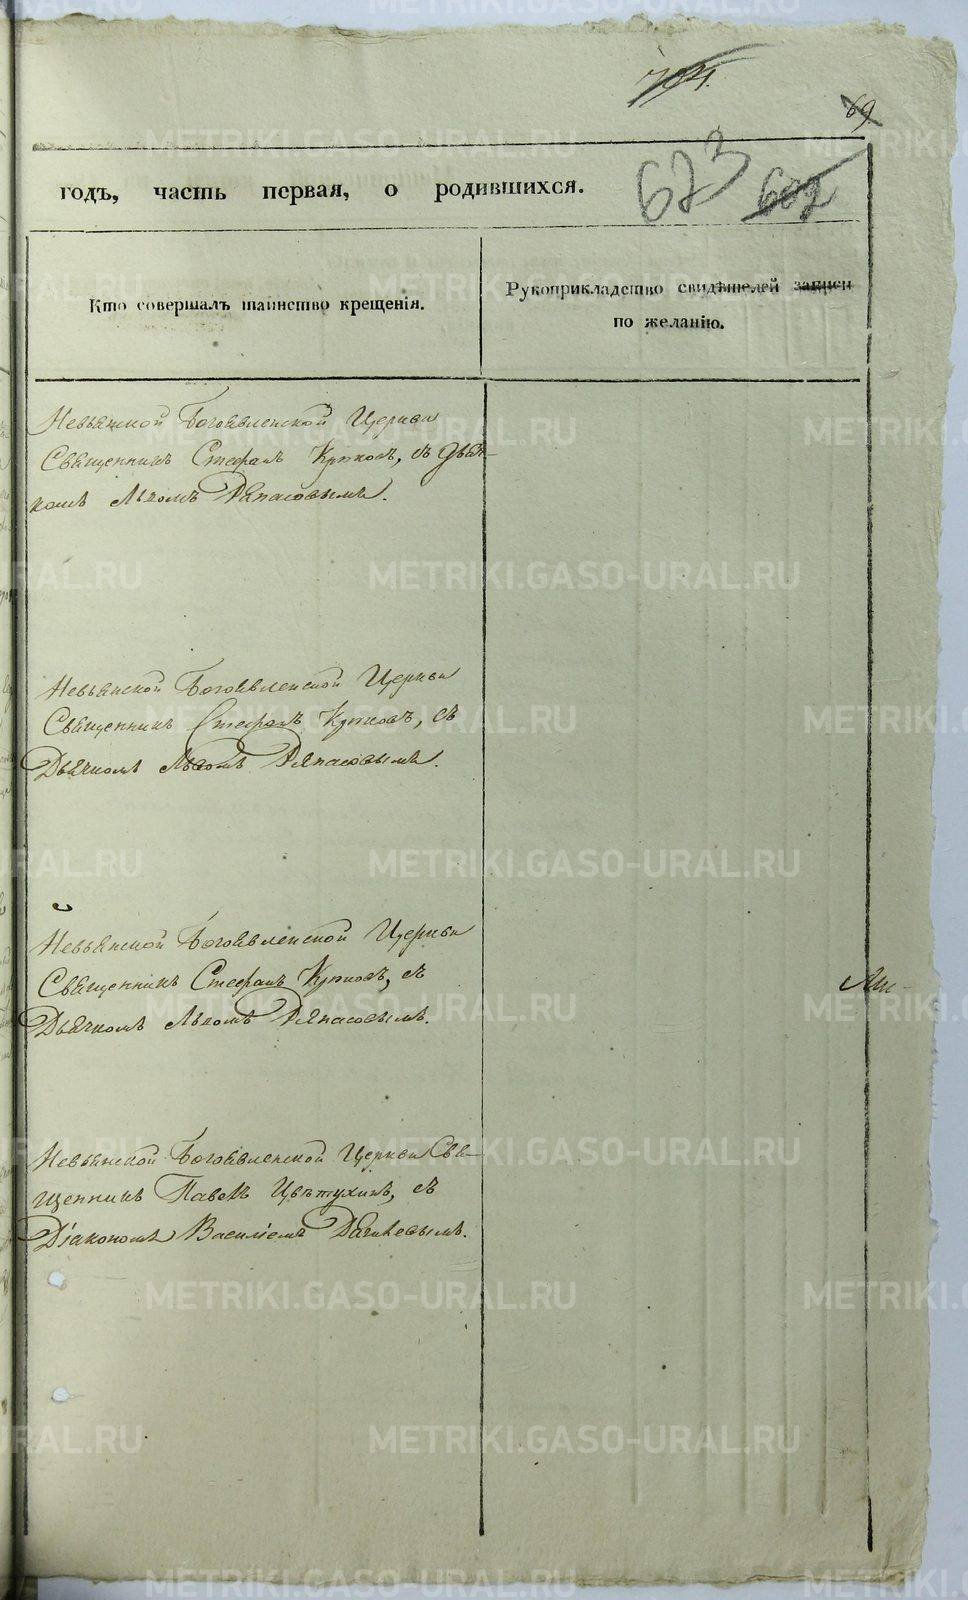 704.
69.
673 602
годъ, часть первая, о родившихся.
Кто совершалъ таинство крещенія.
Рукоприкладство свидѣтелей записи
по желанію.
Невьянской Богоявленской Церкви
Священникъ Стефанъ Кутковъ, съ Дьяч-
комъ Львомъ Ряпасовымъ.
Невьянской Богоявленской Церкви
Священникъ Стефанъ Кутковъ, съ
Дьячкомъ Львомъ Ряпасовымъ.
Невьянской Богоявленской Церкви
Священникъ Стефанъ Кутковъ, съ
Дьячкомъ Львомъ Ряпасовымъ.
Невьянской Богоявленской Церкви Свя-
щенникъ Павелъ Цвѣтухинъ, съ
Діакономъ Василіемъ
METRIKI.GASO-URAL.RU